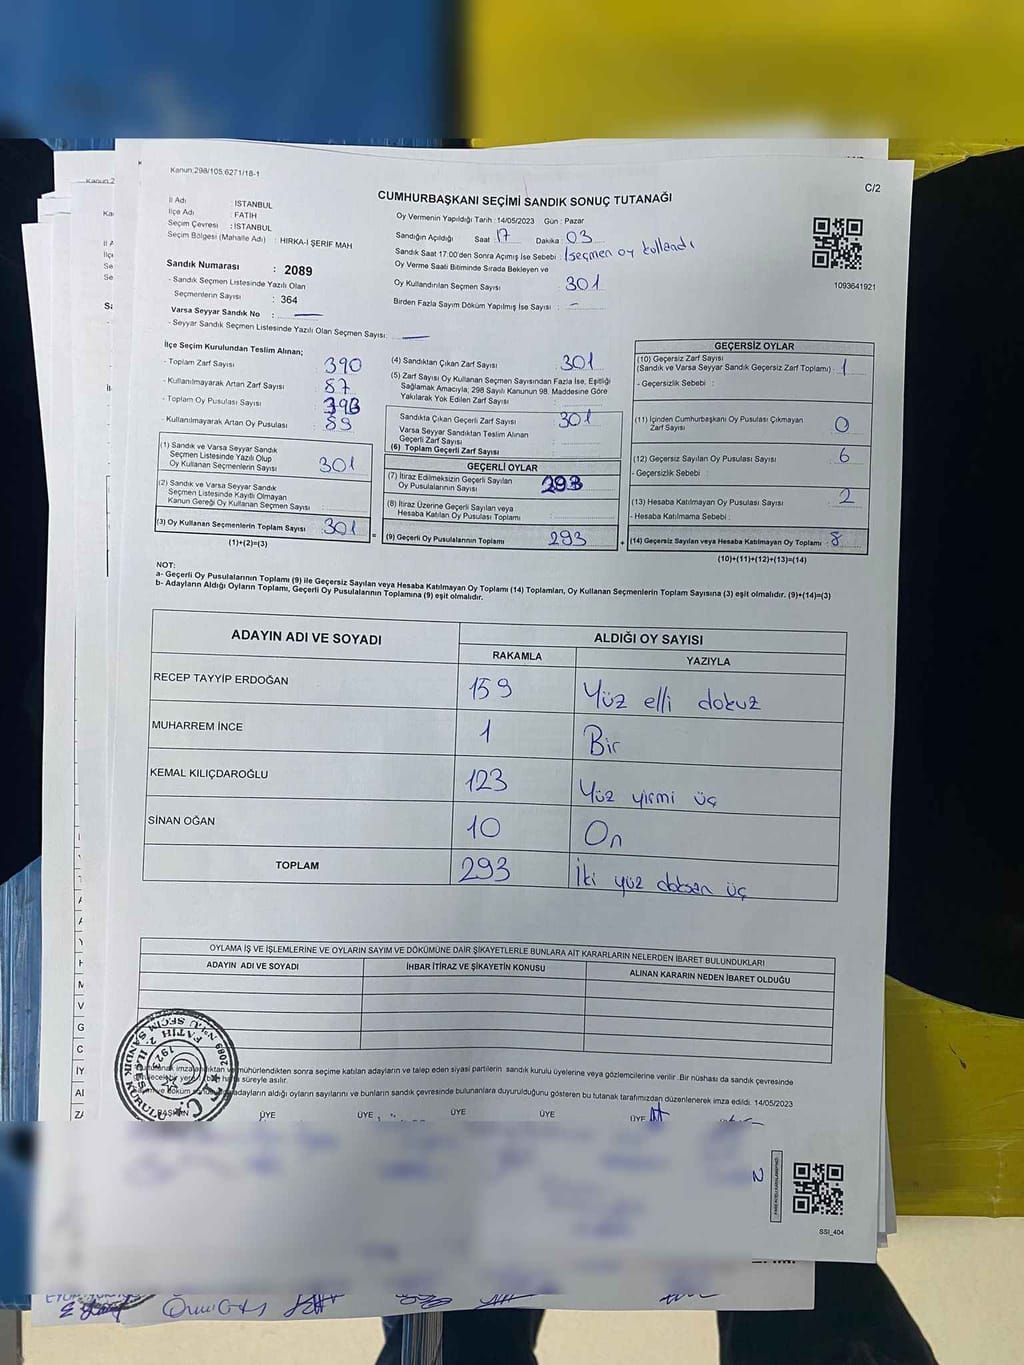 Kanun.298/105.6271/18-1
C/2
CUMHURBAŞKANI SEÇİMİ SANDIK SONUÇ TUTANAĞI
İl Adı : İSTANBUL
İlçe Adı : FATİH
Seçim Çevresi : İSTANBUL
Seçim Bölgesi (Mahalle Adı) : HIRKA-İ ŞERİF MAH
Sandık Numarası : 2089
- Sandık Seçmen Listesinde Yazılı Olan
Seçmenlerin Sayısı : 364
Varsa Seyyar Sandık No : —
- Seyyar Sandık Seçmen Listesinde Yazılı Olan Seçmen Sayısı: —
Oy Vermenin Yapıldığı Tarih : 14/05/2023 Gün : Pazar
Sandığın Açıldığı Saat 17 Dakika : 03
Sandık Saat 17:00'den Sonra Açımış İse Sebebi : 1 seçmen oy kullandı
Oy Verme Saati Bitiminde Sırada Bekleyen ve
Oy Kullandırılan Seçmen Sayısı : 301
Birden Fazla Sayım Döküm Yapılmış İse Sayısı : —
1093641921
İlçe Seçim Kurulundan Teslim Alınan;
- Toplam Zarf Sayısı : 390
- Kullanılmayarak Artan Zarf Sayısı : 87
- Toplam Oy Pusulası Sayısı :
- Kullanılmayarak Artan Oy Pusulası : 89
(1) Sandık ve Varsa Seyyar Sandık
Seçmen Listesinde Yazılı Olup
Oy Kullanan Seçmenlerin Sayısı : 301
(2) Sandık ve Varsa Seyyar Sandık
Seçmen Listesinde Kayıtlı Olmayan
Kanun Gereği Oy Kullanan Seçmen Sayısı :
(3) Oy Kullanan Seçmenlerin Toplam Sayısı : 301
(1)+(2)=(3)
(4) Sandıktan Çıkan Zarf Sayısı : 301
(5) Zarf Sayısı Oy Kullanan Seçmen Sayısından Fazla İse, Eşitliği
Sağlamak Amacıyla, 298 Sayılı Kanunun 98. Maddesine Göre
Yakılarak Yok Edilen Zarf Sayısı :
Sandıkta Çıkan Geçerli Zarf Sayısı : 301
Varsa Seyyar Sandıktan Teslim Alınan
Geçerli Zarf Sayısı :
(6) Toplam Geçerli Zarf Sayısı :
GEÇERLİ OYLAR
(7) İtiraz Edilmeksizin Geçerli Sayılan
Oy Pusulalarının Sayısı : 293
(8) İtiraz Üzerine Geçerli Sayılan veya
Hesaba Katılan Oy Pusulası Toplamı :
(9) Geçerli Oy Pusulalarının Toplamı : 293
GEÇERSİZ OYLAR
(10) Geçersiz Zarf Sayısı
(Sandık ve Varsa Seyyar Sandık Geçersiz Zarf Toplamı) : 1
- Geçersizlik Sebebi :
(11) İçinden Cumhurbaşkanı Oy Pusulası Çıkmayan
Zarf Sayısı : 0
(12) Geçersiz Sayılan Oy Pusulası Sayısı : 6
- Geçersizlik Sebebi :
(13) Hesaba Katılmayan Oy Pusulası Sayısı : 2
- Hesaba Katılmama Sebebi :
(14) Geçersiz Sayılan veya Hesaba Katılmayan Oy Toplamı : 8
(10)+(11)+(12)+(13)=(14)
NOT:
a- Geçerli Oy Pusulalarının Toplamı (9) ile Geçersiz Sayılan veya Hesaba Katılmayan Oy Toplamı (14) Toplamları, Oy Kullanan Seçmenlerin Toplam Sayısına (3) eşit olmalıdır. (9)+(14)=(3)
b- Adayların Aldığı Oyların Toplamı, Geçerli Oy Pusulalarının Toplamına (9) eşit olmalıdır.
ADAYIN ADI VE SOYADI ALDIĞI OY SAYISI
RAKAMLA YAZIYLA
RECEP TAYYİP ERDOĞAN 159 Yüz elli dokuz
MUHARREM İNCE 1 Bir
KEMAL KILIÇDAROĞLU 123 Yüz yirmi üç
SİNAN OĞAN 10 On
TOPLAM 293 İki yüz doksan üç
OYLAMA İŞ VE İŞLEMLERİNE VE OYLARIN SAYIM VE DÖKÜMÜNE DAİR ŞİKAYETLERLE BUNLARA AİT KARARLARIN NELERDEN İBARET BULUNDUKLARI
ADAYIN ADI VE SOYADI İHBAR İTİRAZ VE ŞİKAYETİN KONUSU ALINAN KARARIN NEDEN İBARET OLDUĞU
mühürlendikten sonra seçime katılan adayların ve talep eden siyasi partilerin sandık kurulu üyelerine veya gözlemcilerine verilir .Bir nüshası da sandık çevresinde
süreyle asılır.
adayların aldığı oyların sayılarını ve bunların sandık çevresinde bulunanlara duyurulduğunu gösteren bu tutanak tarafımızdan düzenlenerek imza edildi. 14/05/2023
T.C. FATİH 2. İLÇE SEÇİM 2089 NOLU SANDIK KURULU
BAŞKAN ÜYE ÜYE ÜYE ÜYE ÜYE
SSI_404